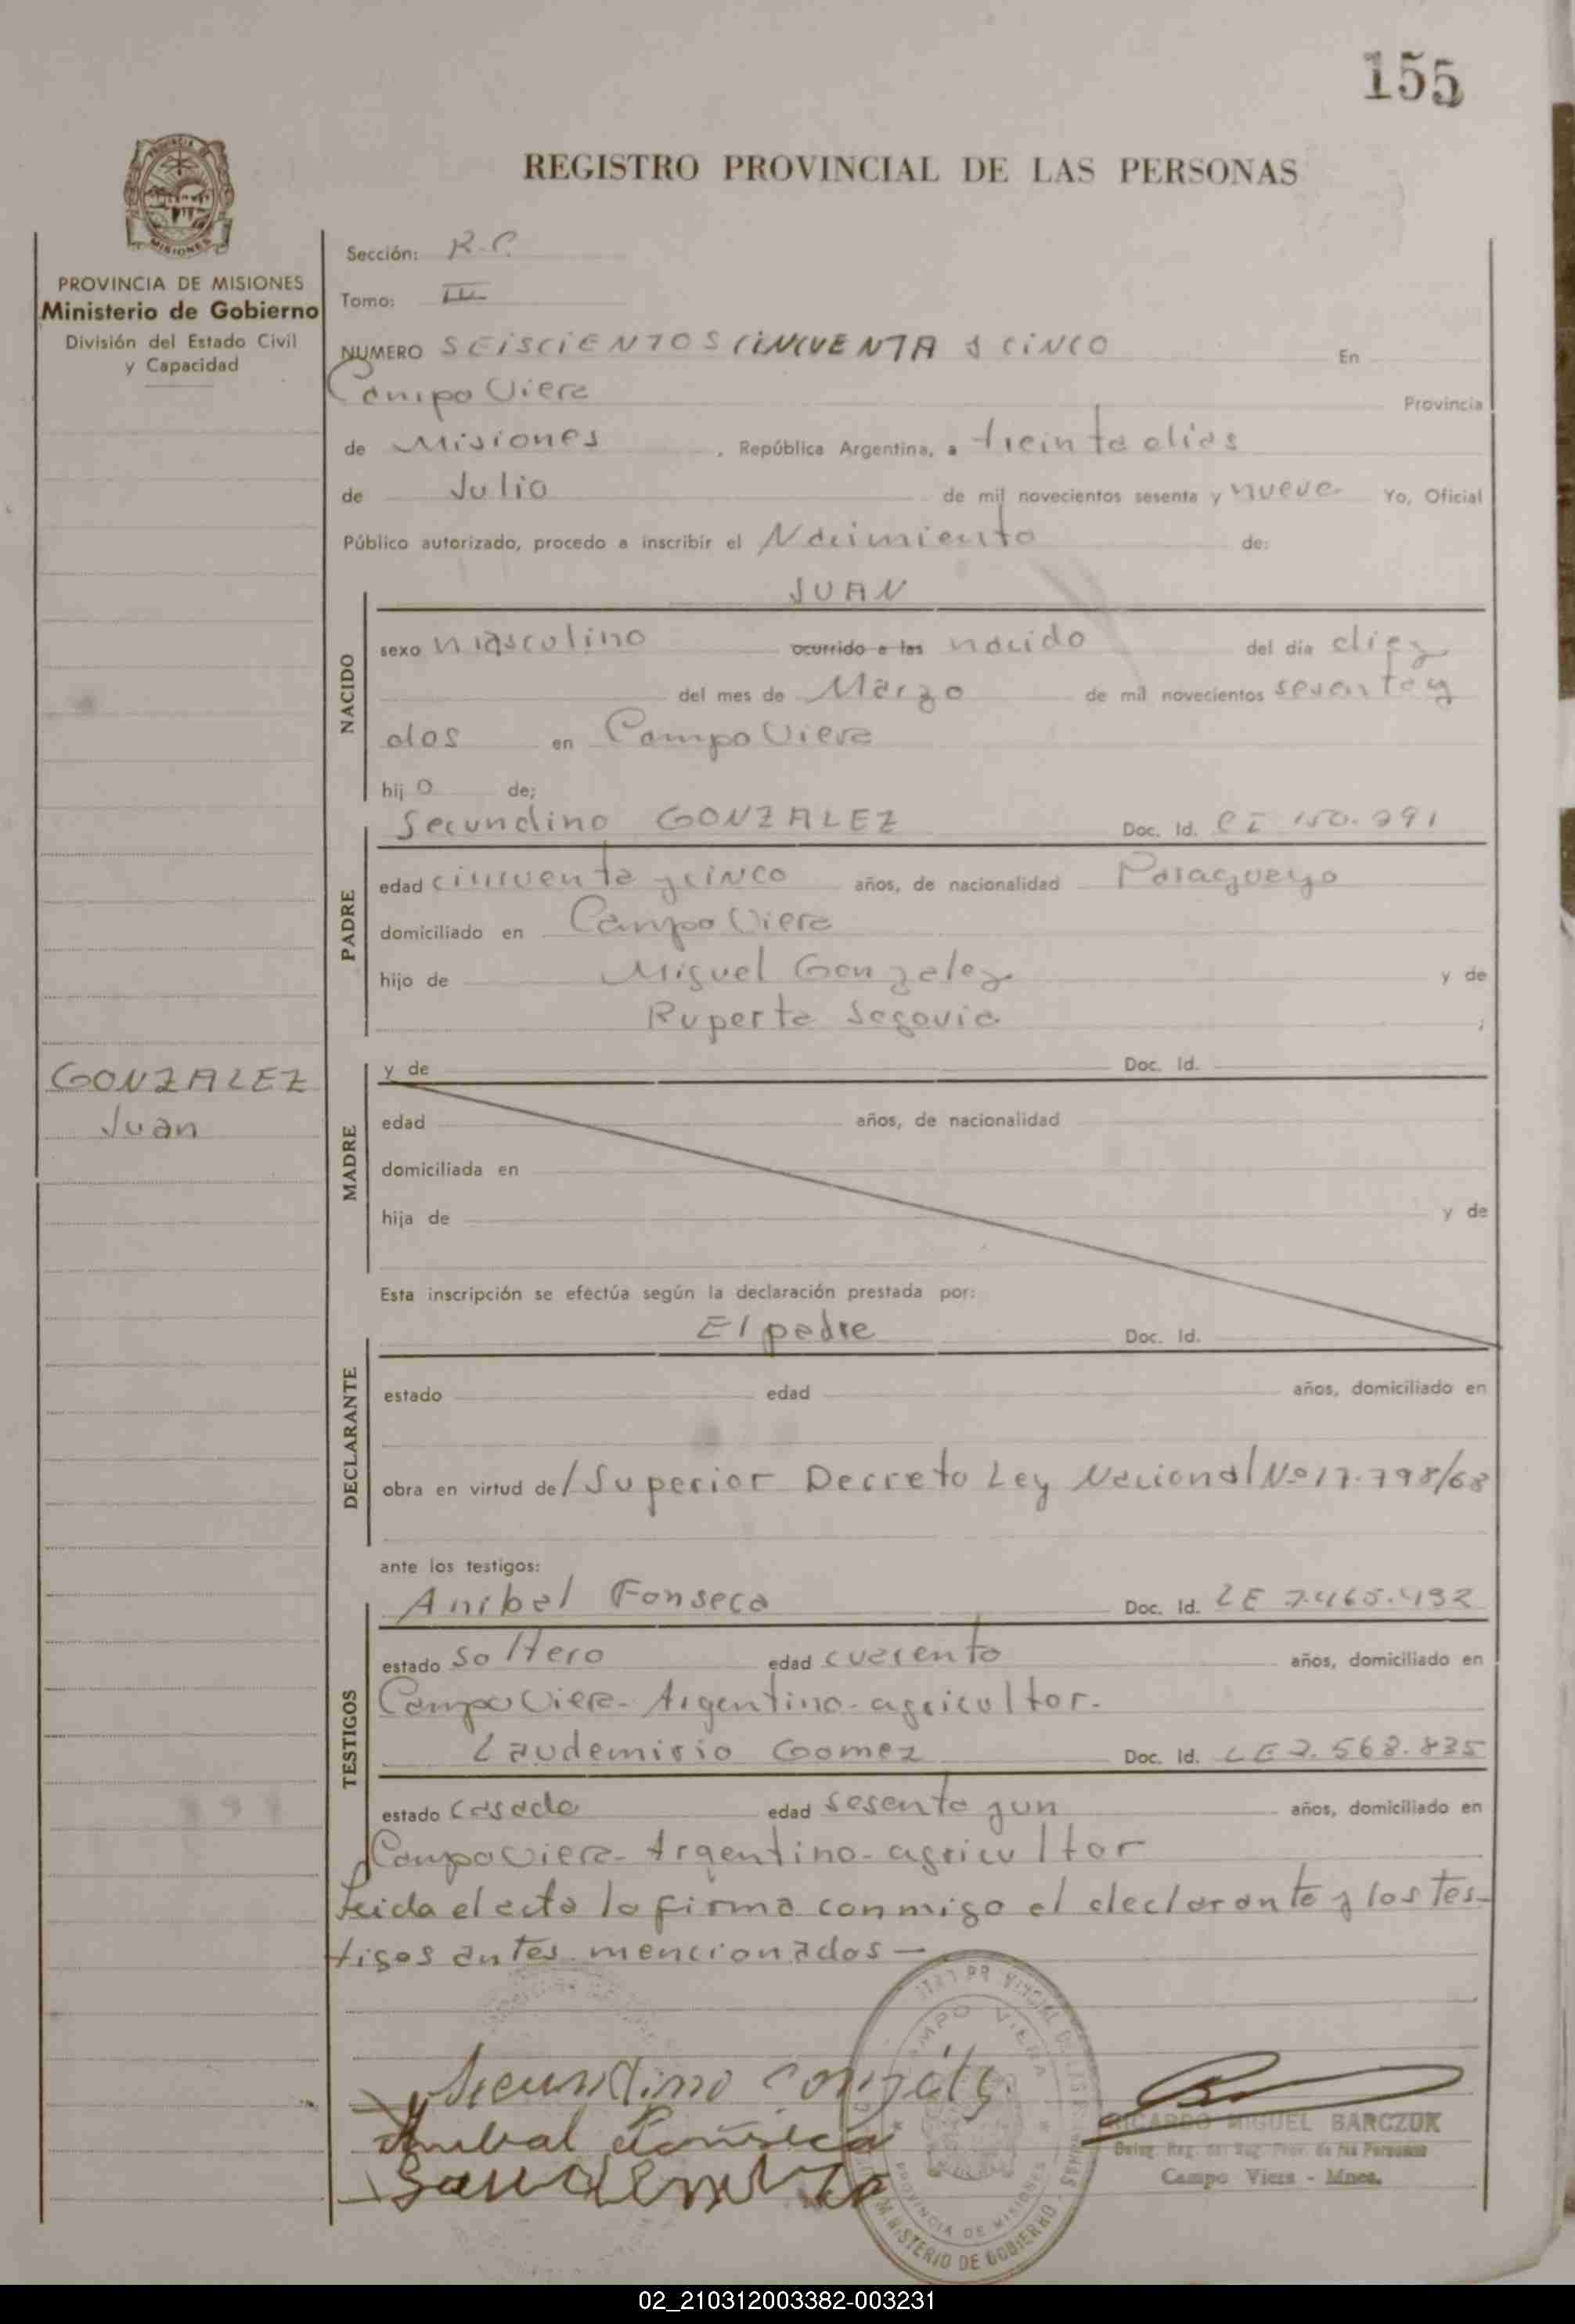 155
REGISTRO PROVINCIAL DE LAS PERSONAS
MISIONES
PROVINCIA DE MISIONES
Ministerio de Gobierno
División del Estado Civil
y Capacidad
Sección: R.C.
Tomo:
NUMERO SEISCIENTOS CINCUENTA y CINCO En
Campo Viera Provincia
de Misiones , República Argentina, a treinta días
de Julio de mil novecientos sesenta y nueve Yo, Oficial
Público autorizado, procedo a inscribir el Nacimiento de:
JUAN
NACIDO
sexo masculino ocurrido a las nacido del día diez
del mes de Marzo de mil novecientos
dos en Campo Viera
hijo de;
Secundino GONZALEZ Doc. Id. CI
PADRE
edad cincuenta y cinco años, de nacionalidad Paraguayo
domiciliado en Campo Viera
hijo de Miguel Gonzalez y de
Ruperta Segovia ;
GONZALEZ
Juan
y de Doc. Id.
MADRE
edad años, de nacionalidad
domiciliada en
hija de y de
Esta inscripción se efectúa según la declaración prestada por:
El padre Doc. Id.
DECLARANTE
estado edad años, domiciliado en
obra en virtud de/ Superior Decreto Ley Nacional Nº 17.798/68
ante los testigos:
Anibal Fonseca Doc. Id. LE 7.465.432
TESTIGOS
estado soltero edad cuarenta años, domiciliado en
Campo Viera- Argentino- agricultor.
Laudemirio Gomez Doc. Id. LE 2.568.835
estado casado edad sesenta y un años, domiciliado en
Campo Viera- Argentino- agricultor
Leida el acta la firma conmigo el declarante y los tes-
tigos antes mencionados —
Secundino Gonzalez
Anibal Fonseca
CAMPO VIERA
PROVINCIA DE MISIONES
MINISTERIO DE GOBIERNO
RICARDO MIGUEL BARCZUK
Deleg. Reg. del Reg. Prov. de las Personas
Campo Viera - Mnes.
02_210312003382-003231